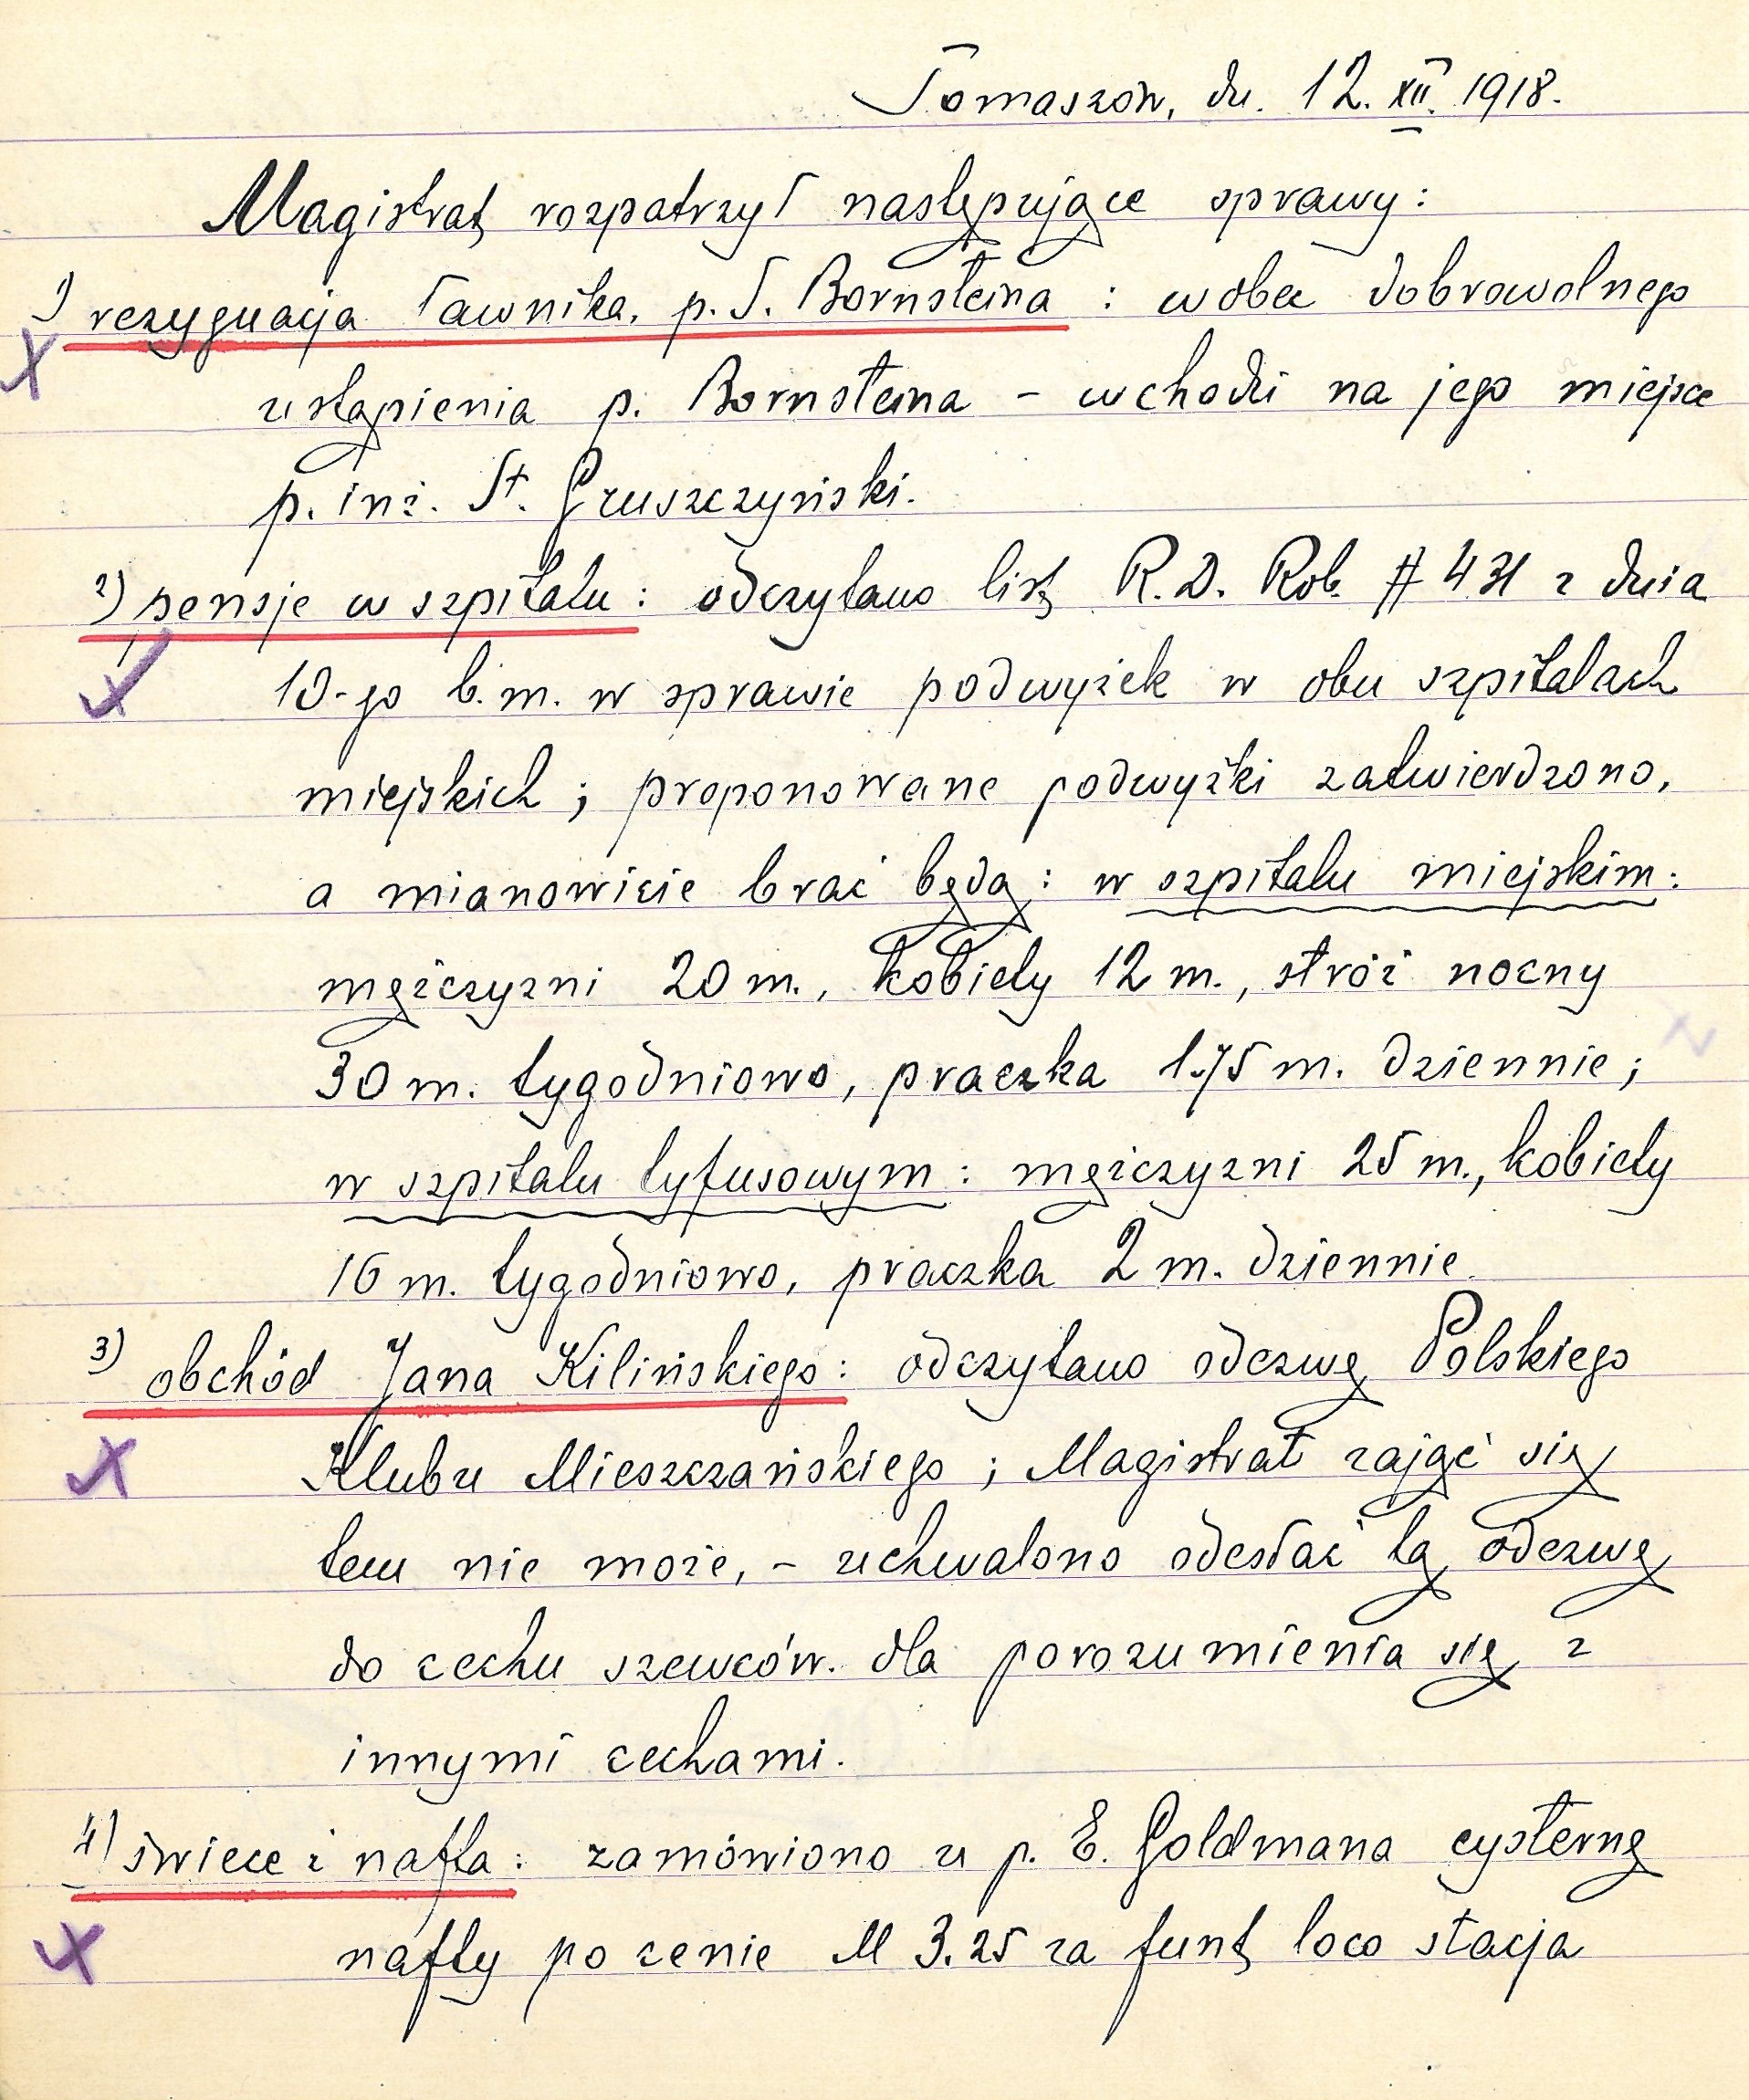 Tomaszów, dn. 12. XII. 1918.
Magistrat rozpatrzył następujące sprawy:
1) rezygnacja ławnika, p. S. Bornsteina : wobec dobrowolnego
ustąpienia p. Bornsteina – wchodzi na jego miejsce
p. inż. St. Gruszczyński.
2) pensje w szpitalu : odczytano list R. D. Rob. # 431 z dnia
10-go b.m. w sprawie podwyżek w obu szpitalach
miejskich ; proponowane podwyżki zatwierdzono,
a mianowicie brać będą : w szpitalu miejskim :
mężczyzni 20 m., kobiety 12 m., stróż nocny
30 m. tygodniowo, praczka 1.75 m. dziennie ;
w szpitalu tyfusowym : mężczyzni 25 m., kobiety
16 m. tygodniowo, praczka 2 m. dziennie.
3) obchód Jana Kilińskiego : odczytano odezwę Polskiego
Klubu Mieszczańskiego ; Magistrat zająć się
tem nie może, – uchwalono odesłać tą odezwę
do cechu szewców. dla porozumienia się z
innymi cechami.
4) świece i nafta : zamówiono u p. E. Goldmana cysternę
nafty po cenie M 3.25 za funt loco stacja